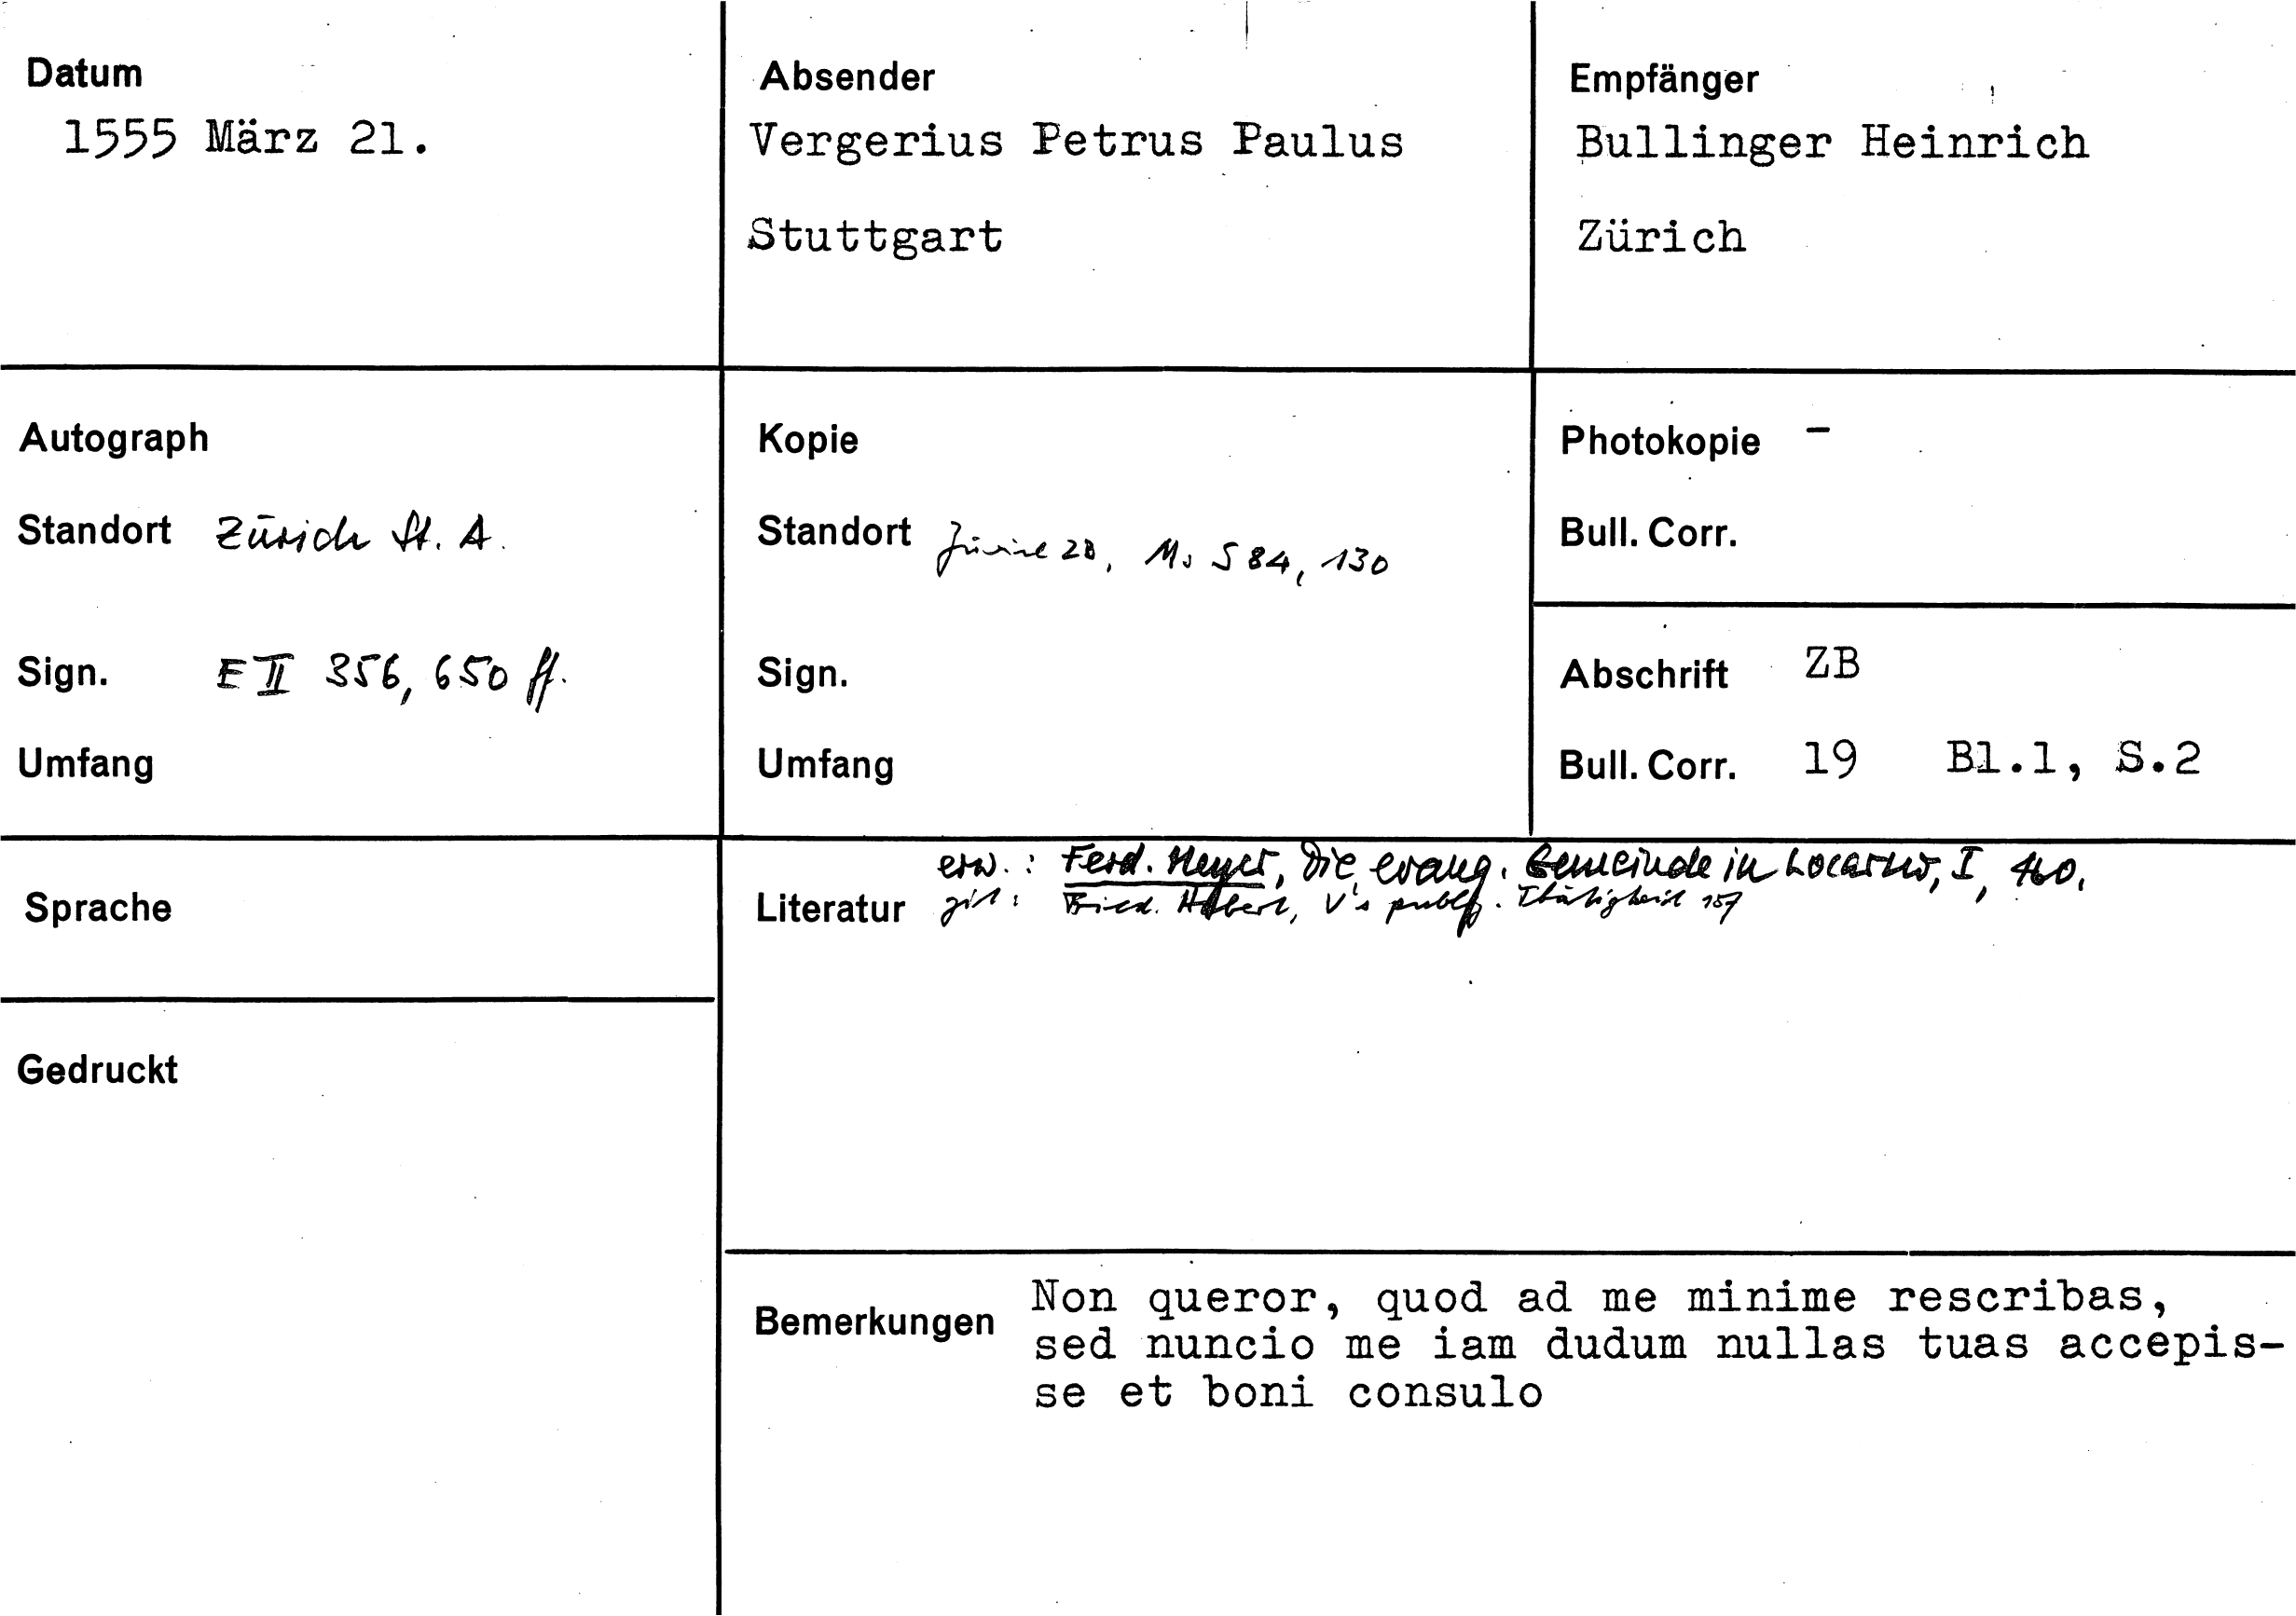 Datum
1555 März 21.
Absender
Vergerius Petrus Paulus
Stuttgart
Empfänger
Bullinger Heinrich
Zürich
Autograph
Standort Zürich St. A.
Sign. E II 356, 650 ff.
Umfang
Kopie
Standort Zürich ZB, Ms S 84, 130
Sign.
Umfang
Photokopie -
Bull. Corr.
Abschrift ZB
Bull. Corr. 19 Bl.1, S.2
Sprache
Gedruckt
erw.: Ferd. Meyer, Die evang. Gemeinde in Locarno, I,
Literatur zit: Hubert, V's publ. Thätigkeit 157
Bemerkungen Non queror, quod ad me minime rescribas,
sed nuncio me iam dudum nullas tuas accepis-
se et boni consulo